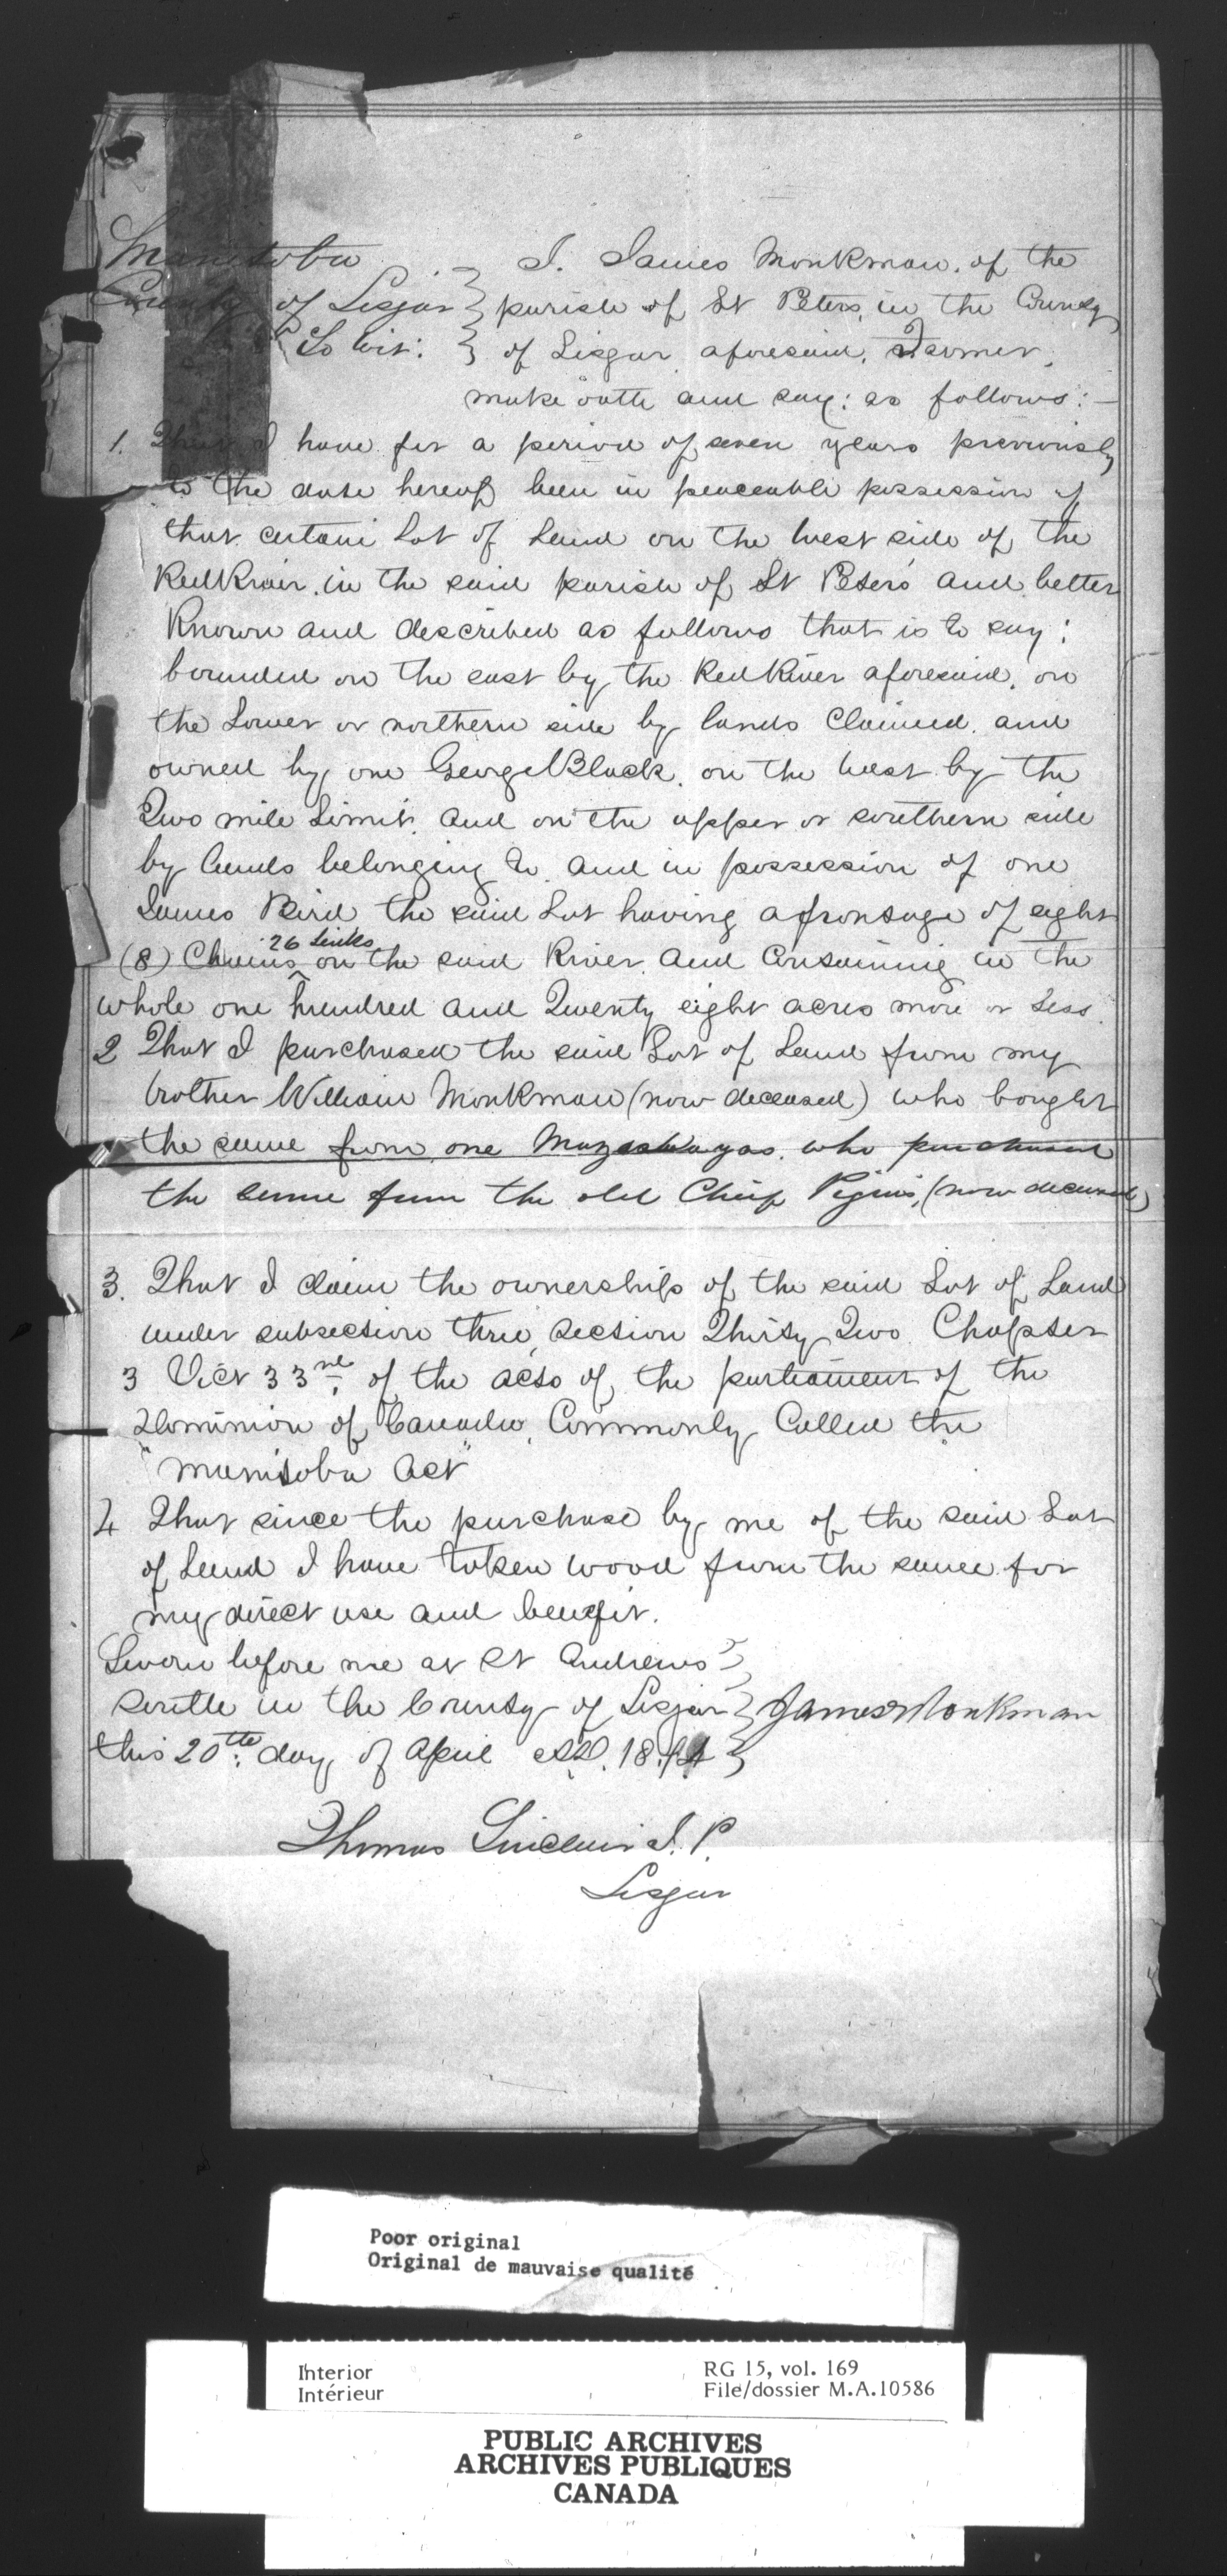 Manitoba
County of Lisgar
To Wit:
I. James Monkman, of the
parish of St Peters, in the County
of Lisgar aforesaid, Farmer,
make oath and say: as follows:—
1. That I have for a period of seven years previously
to the date hereof been in peaceable possession of
that certain Lot of Land on the West side of the
Red River, in the said parish of St Peters and better
Known and described as follows that is to say:
bounded on the east by the Red River aforesaid, on
the Lower or northern side by lands Claimed and
owned by one George Black, on the West by the
Two mile Limit, and on the upper or southern side
by lands belonging to and in possession of one
James Bird the said Lot having a frontage of eight
26 Links
(8) Chains ^ on the said River and Containing in the
whole one hundred and Twenty eight acres more or less.
2 That I purchased the said Lot of Land from my
brother William Monkman (now deceased) who bought
the same from one who purchased
the same from the old Chief Peguis, (now deceased)
3. That I claim the ownership of the said Lot of Land
under subsection three, Section Thirty Two Chapter
3 Vict 33rd of the acts of the parliament of the
Dominion of Canada, Commonly Called the
"Manitoba Act"
4 That since the purchase by me of the said Lot
of Land I have taken wood from the same for
my direct use and benefit.
Sworn before me at St Andrews
South in the County of Lisgar
this 20th day of April A.D. 18
James Monkman
Thomas Sinclair J.P.
Lisgar
Poor original
Original de mauvaise qualité
Interior
Intérieur
RG 15, vol. 169
File/dossier M.A.10586
PUBLIC ARCHIVES
ARCHIVES PUBLIQUES
CANADA